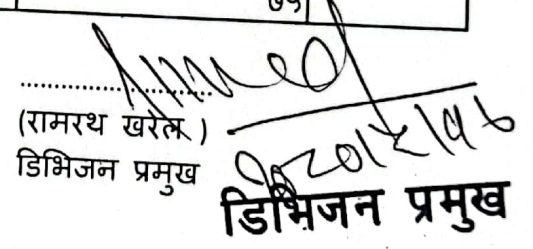 ७५
(रामरथ खरेल)
डिभिजन प्रमुख
डिभिजन प्रमुख